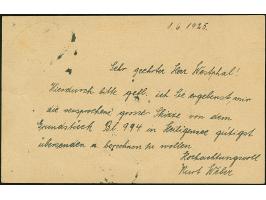 1.6.1925.
Sehr geehrter Herr Westphal!
Hierdurch bitte ich Sie ergebenst mir
die versprochene grosse Skizze von dem
Grundstück Bl. 994 in Heiligensee gütigst
übersenden zu wollen
Hochachtungsvoll
Kurt